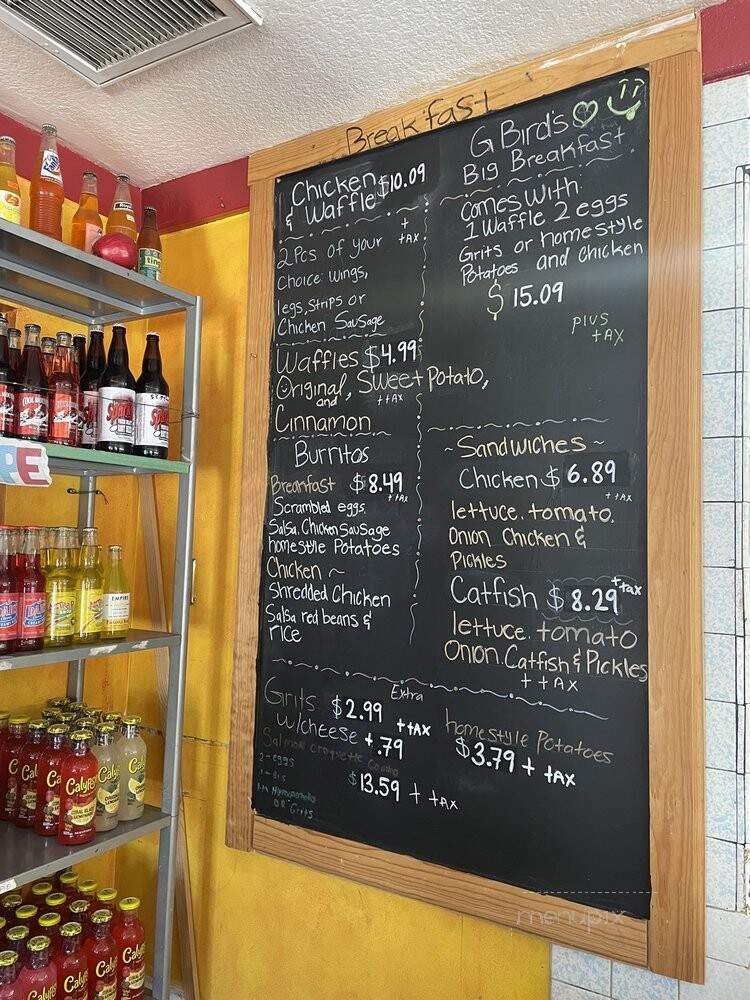 Breakfast
Chicken $10.09
& Waffle
+
+AX
2 Pcs of your
Choice wings,
legs, strips or
Chicken Sausage
Waffles $4.99
Original, Sweet Potato,
and
++AX
Cinnamon
Burritos
Breakfast $8.49
++AX
Scrambled eggs.
Salsa. Chicken Sausage
homestyle Potatoes
Chicken ~
Shredded Chicken
Salsa red beans &
rice
G Bird's
Big Breakfast
Comes with
1 Waffle 2 eggs
Grits or homestyle
Potatoes and Chicken
$15.09
plus
+AX
~Sandwiches~
Chicken $6.89
++AX
lettuce. tomato.
Onion Chicken &
Pickles
Catfish $8.29
++ax
lettuce. tomato
Onion. Catfish & Pickles
++AX
Extra
Grits $2.99 ++AX
w/cheese +.79
Salmon croquette Combo
2-eggs
$13.59 + +AX
OR Grits
homestyle Potatoes
$3.79 + +AX
menupix
Calypso
Calypso
Calypso
Calypso